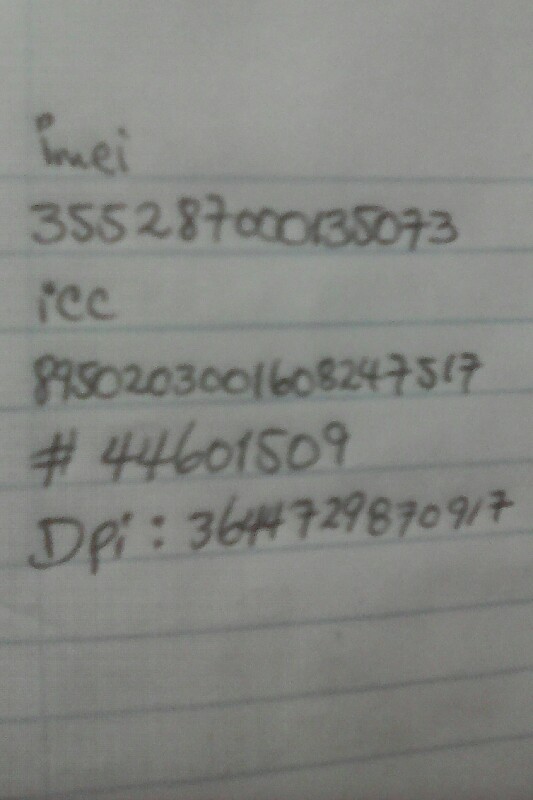 imei
355287000135073
icc
8950203001608247517
# 44601509
Dpi : 3644729870917